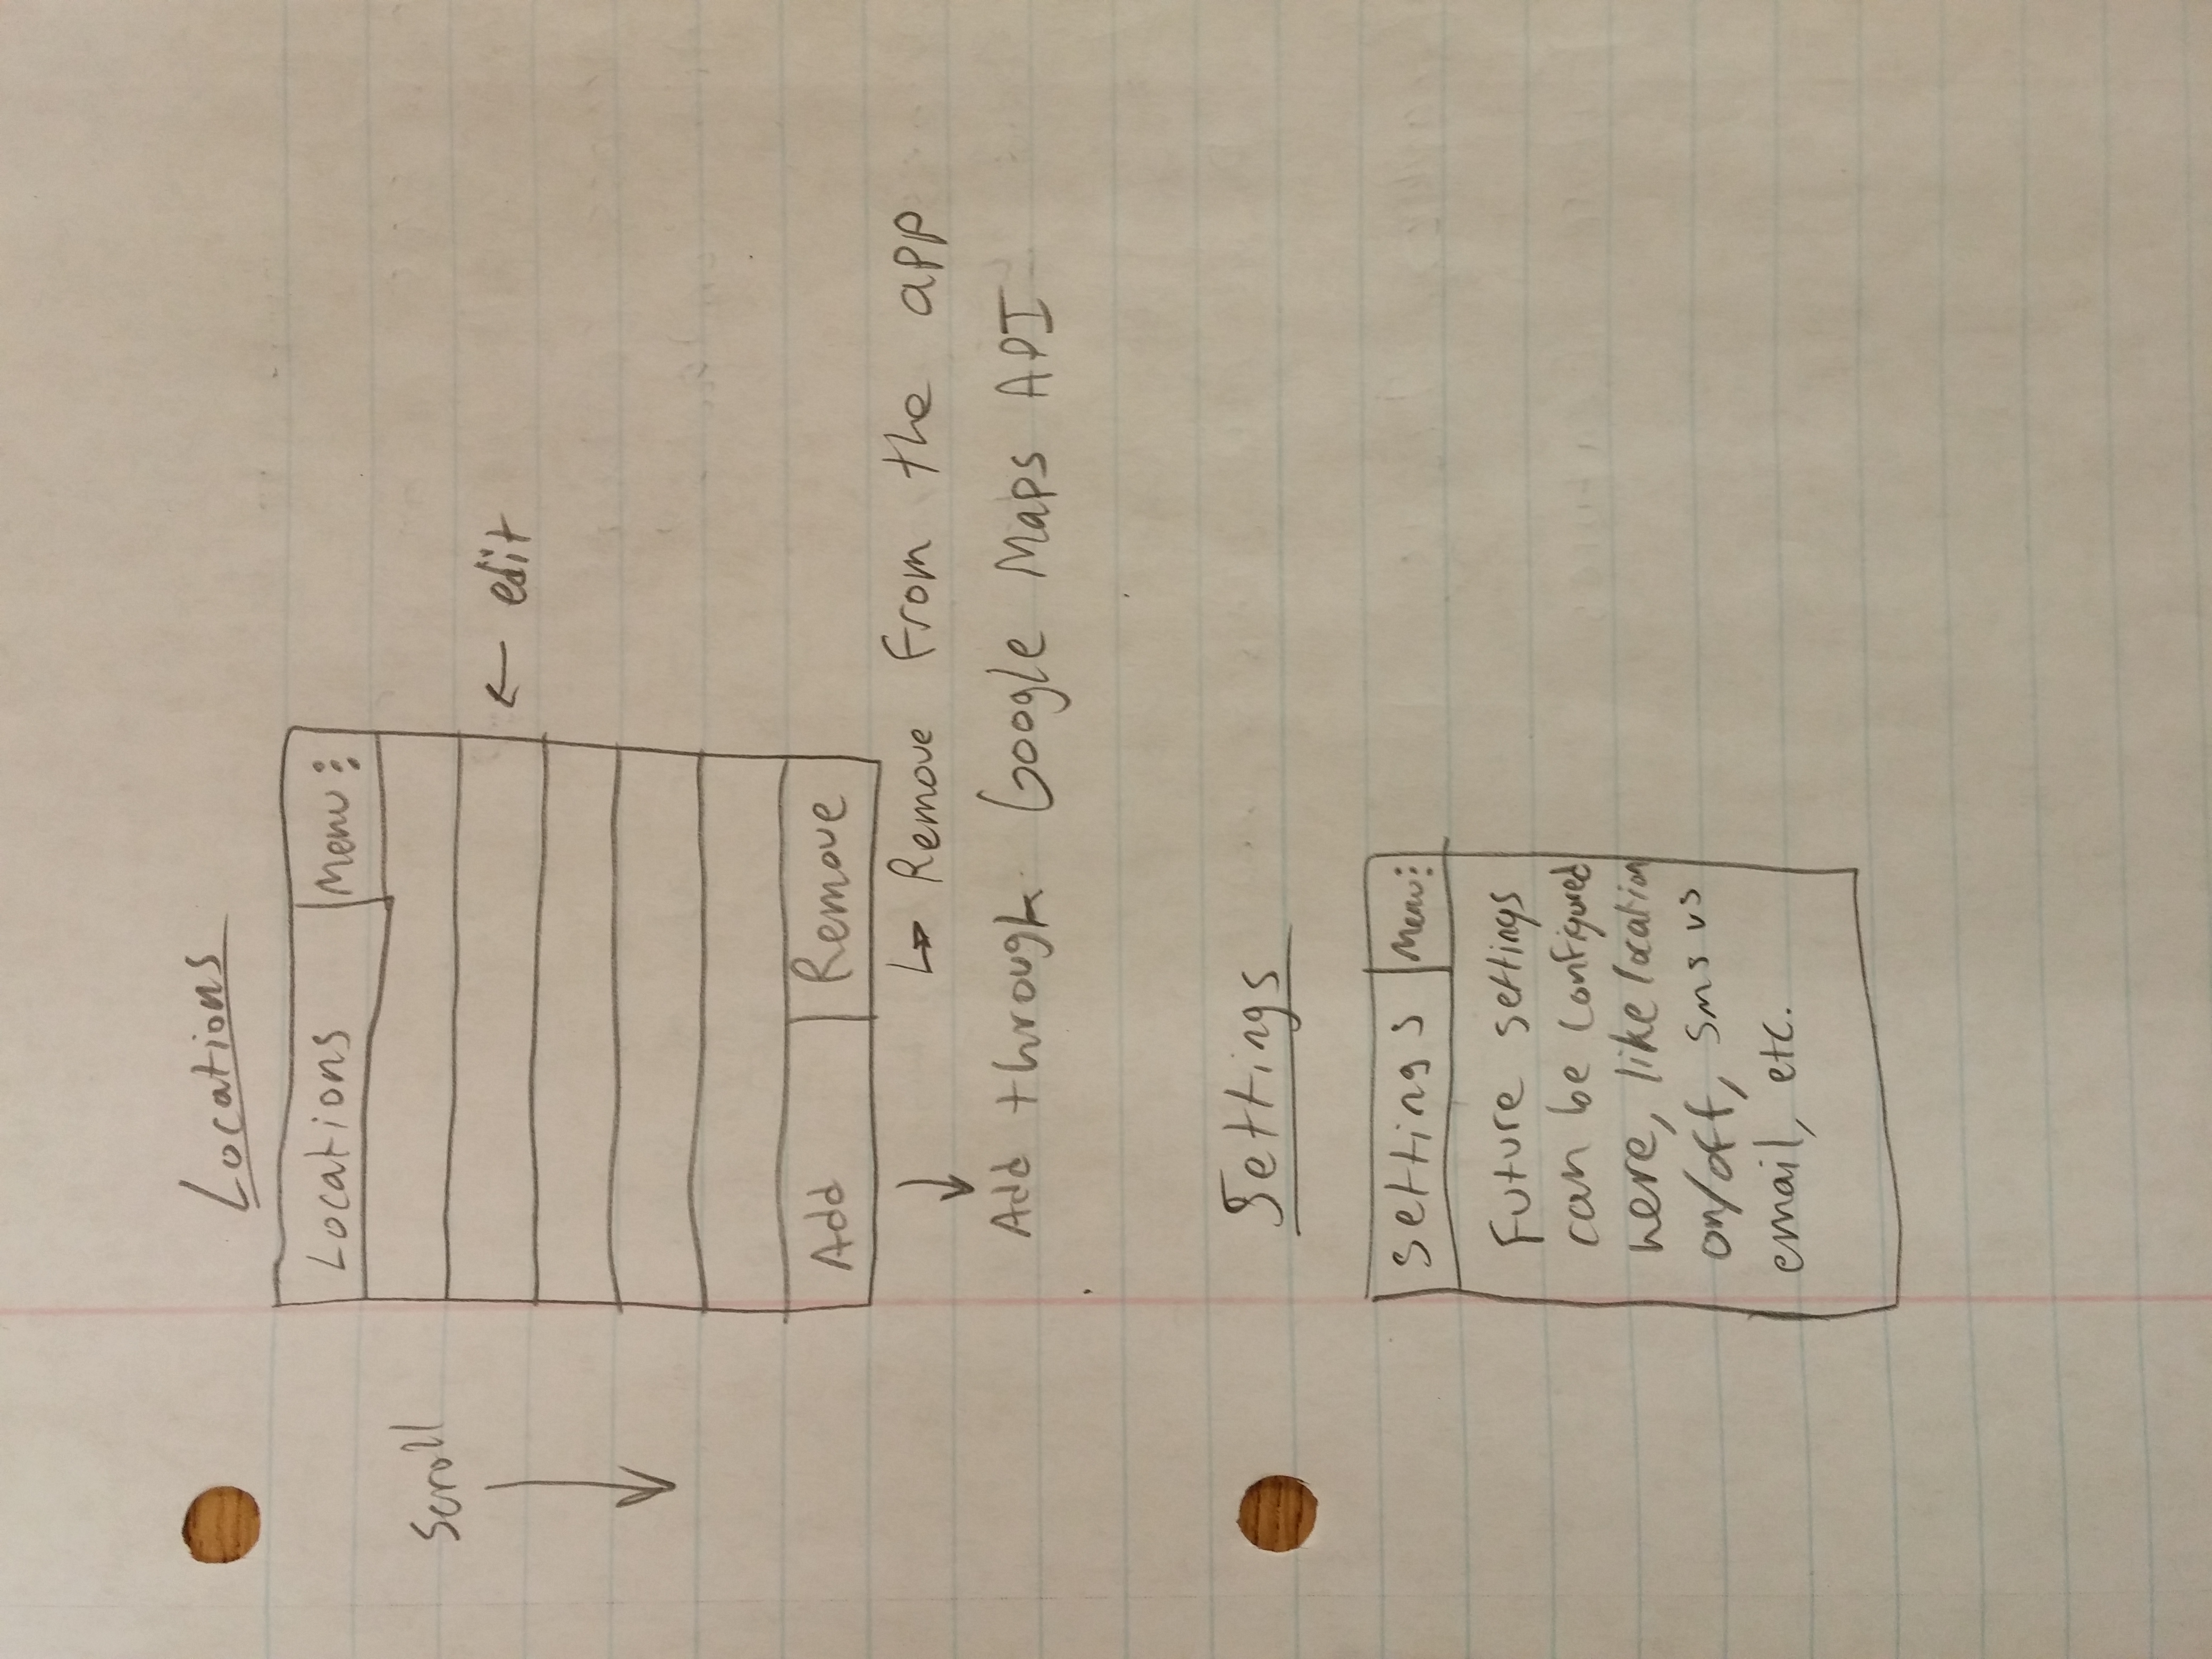 Locations
Locations Menu ⋮
Scroll
← edit
Add Remove
↳ Remove from the app
Add through Google Maps API
Settings
Settings Menu ⋮
Future settings
can be configured
here, like location
on/off, sms vs
email, etc.